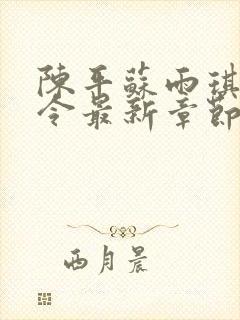 陳平蘇雨琪
令最新章節
西月晨